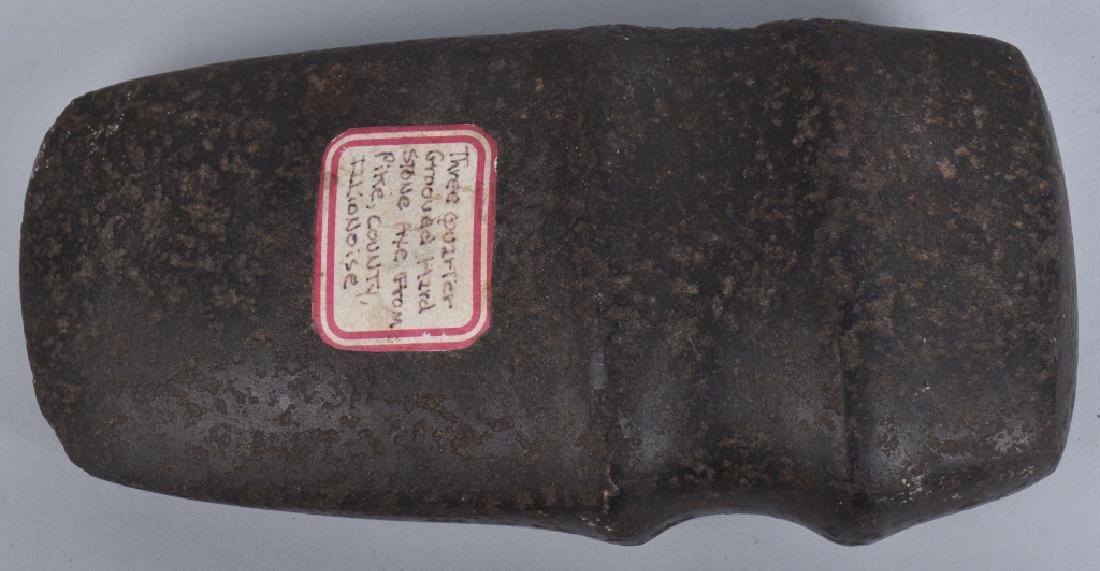 Three quarter
Grooved Hard
stone Axe From
Pike, COUNTY,
ILLiONOise